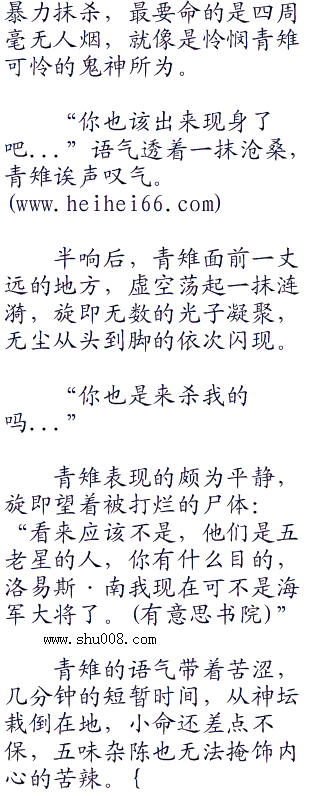 暴力抹杀，最要命的是四周
毫无人烟，就像是怜悯青雉
可怜的鬼神所为。
“你也该出来现身了
吧...”语气透着一抹沧桑，
青雉诶声叹气。
(www.heihei66.com)
半响后，青雉面前一丈
远的地方，虚空荡起一抹涟
漪，旋即无数的光子凝聚，
无尘从头到脚的依次闪现。
“你也是来杀我的
吗...”
青雉表现的颇为平静，
旋即望着被打烂的尸体：
“看来应该不是，他们是五
老星的人，你有什么目的，
洛易斯·南我现在可不是海
军大将了。(有意思书院)”
www.shu008.com
青雉的语气带着苦涩，
几分钟的短暂时间，从神坛
栽倒在地，小命还差点不
保，五味杂陈也无法掩饰内
心的苦辣。{